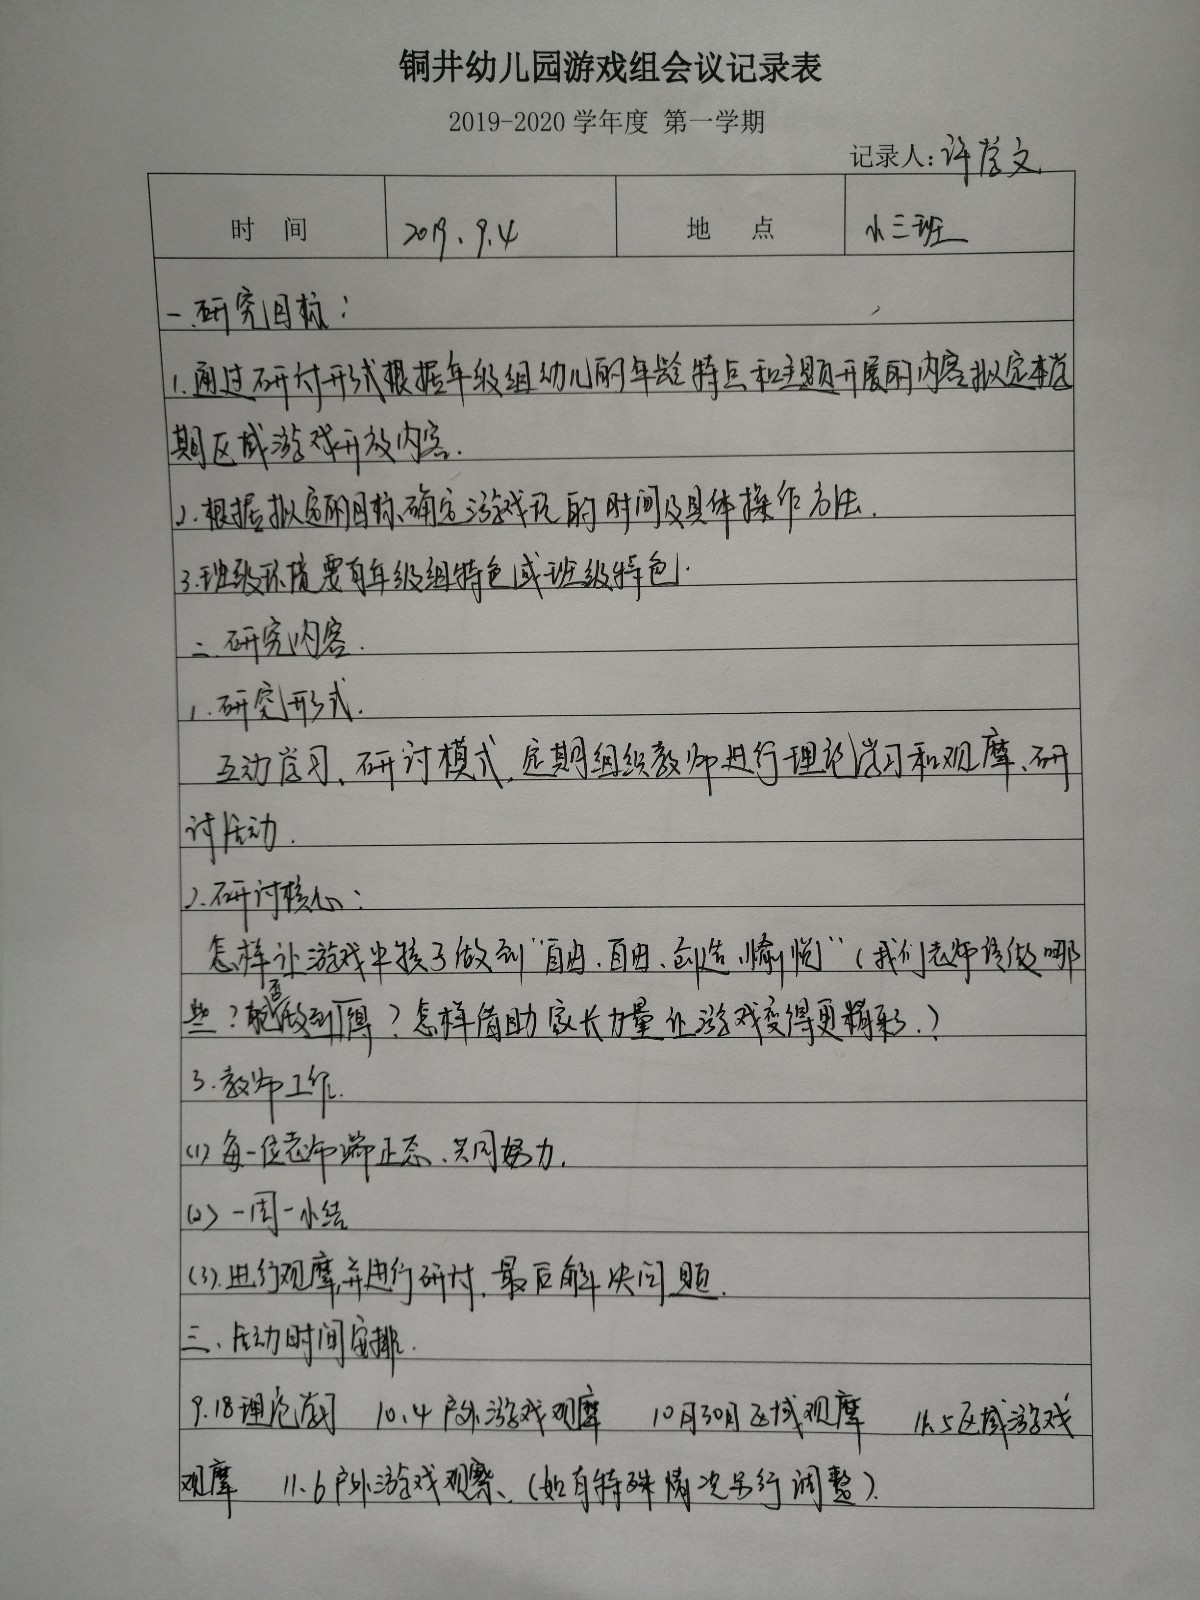 铜井幼儿园游戏组会议记录表
2019-2020 学年度 第一学期
记录人: 许学文
时 间 2019.9.4 地 点 小三班
一.研究目标:
1.通过研讨形式根据年级组幼儿的年龄特点和主题开展的内容拟定本学
期区域游戏开放内容.
2.根据拟定的目标、确定游戏玩的时间及具体操作方法.
3.班级环境要有年级组特色或班级特色.
二.研究内容.
1.研究形式.
互动学习、研讨模式,定期组织教师进行理论学习和观摩、研
讨活动.
2.研讨核心:
怎样让游戏中孩子做到“自由、自由、创造、愉悦”(我们老师该做哪
些?能否做到 ? 怎样借助家长力量让游戏变得更精彩.)
3.教师工作.
(1)每一位老师端正态、共同努力.
(2)一周一小结
(3).进行观摩,并进行研讨,最后解决问题.
三、活动时间安排.
9.18理论学习 10.4户外游戏观摩 10月30月区域观摩 11.5区域游戏
观摩 11.6户外游戏观察、(如有特殊情况另行调整).